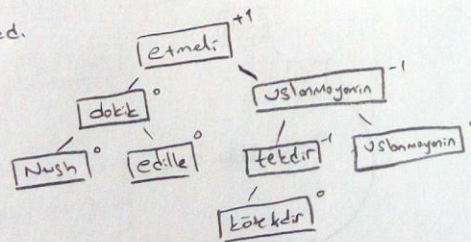 ed.
etmeli +1
dokik 0
uslanmayanin -1
Nush 0
edille 0
tekdir -1
uslanmayanin
kötekdir 0